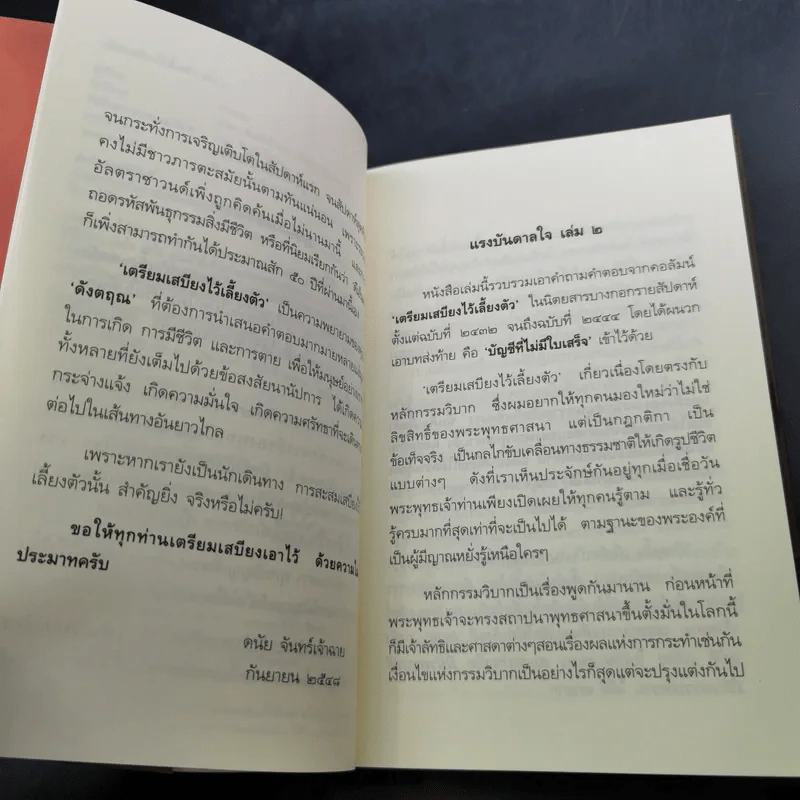 จนกระทั่งการเจริญเติบโตในสัปดาห์แรก จนสัปดาห์
คงไม่มีชาวภารตะสมัยนั้นตามทันแน่นอน
อัลตราซาวนด์เพิ่งถูกคิดค้นเมื่อไม่นานมานี้
ถอดรหัสพันธุกรรมสิ่งมีชีวิต หรือที่นิยมเรียกกันว่า
ก็เพิ่งสามารถทำกันได้ประมาณสัก ๕๐ ปีที่ผ่านมานี้เอง
'เตรียมเสบียงไว้เลี้ยงตัว' เป็นความพยายามของ
'ดังตฤณ' ที่ต้องการนำเสนอคำตอบมากมายหลาย
ในการเกิด การมีชีวิต และการตาย เพื่อให้มนุษย์
ทั้งหลายที่ยังเต็มไปด้วยข้อสงสัยนานัปการ ได้เกิด
กระจ่างแจ้ง เกิดความมั่นใจ เกิดความศรัทธาที่จะ
ต่อไปในเส้นทางอันยาวไกล
เพราะหากเรายังเป็นนักเดินทาง การสะสมเสบียงไว้
เลี้ยงตัวนั้น สำคัญยิ่ง จริงหรือไม่ครับ!
ขอให้ทุกท่านเตรียมเสบียงเอาไว้ ด้วยความไม่
ประมาทครับ
ดนัย จันทร์เจ้าฉาย
กันยายน ๒๕๔๘
แรงบันดาลใจ เล่ม ๒
หนังสือเล่มนี้รวบรวมเอาคำถามคำตอบจากคอลัมน์
'เตรียมเสบียงไว้เลี้ยงตัว' ในนิตยสารบางกอกรายสัปดาห์
ตั้งแต่ฉบับที่ ๒๔๓๒ จนถึงฉบับที่ ๒๔๔๔ โดยได้ผนวก
เอาบทส่งท้าย คือ 'บัญชีที่ไม่มีใบเสร็จ' เข้าไว้ด้วย
'เตรียมเสบียงไว้เลี้ยงตัว' เกี่ยวเนื่องโดยตรงกับ
หลักกรรมวิบาก ซึ่งผมอยากให้ทุกคนมองใหม่ว่าไม่ใช่
ลิขสิทธิ์ของพระพุทธศาสนา แต่เป็นกฎกติกา เป็น
ข้อเท็จจริง เป็นกลไกขับเคลื่อนทางธรรมชาติให้เกิดรูปชีวิต
แบบต่างๆ ดังที่เราเห็นประจักษ์กันอยู่ทุกเมื่อเชื่อวัน
พระพุทธเจ้าท่านเพียงเปิดเผยให้ทุกคนรู้ตาม และรู้ทั่ว
รู้ครบมากที่สุดเท่าที่จะเป็นไปได้ ตามฐานะของพระองค์ที่
เป็นผู้มีญาณหยั่งรู้เหนือใครๆ
หลักกรรมวิบากเป็นเรื่องพูดกันมานาน ก่อนหน้าที่
พระพุทธเจ้าจะทรงสถาปนาพุทธศาสนาขึ้นตั้งมั่นในโลกนี้
ก็มีเจ้าลัทธิและศาสดาต่างๆสอนเรื่องผลแห่งการกระทำเช่นกัน
เงื่อนไขแห่งกรรมวิบากเป็นอย่างไรก็สุดแต่จะปรุงแต่งกันไป